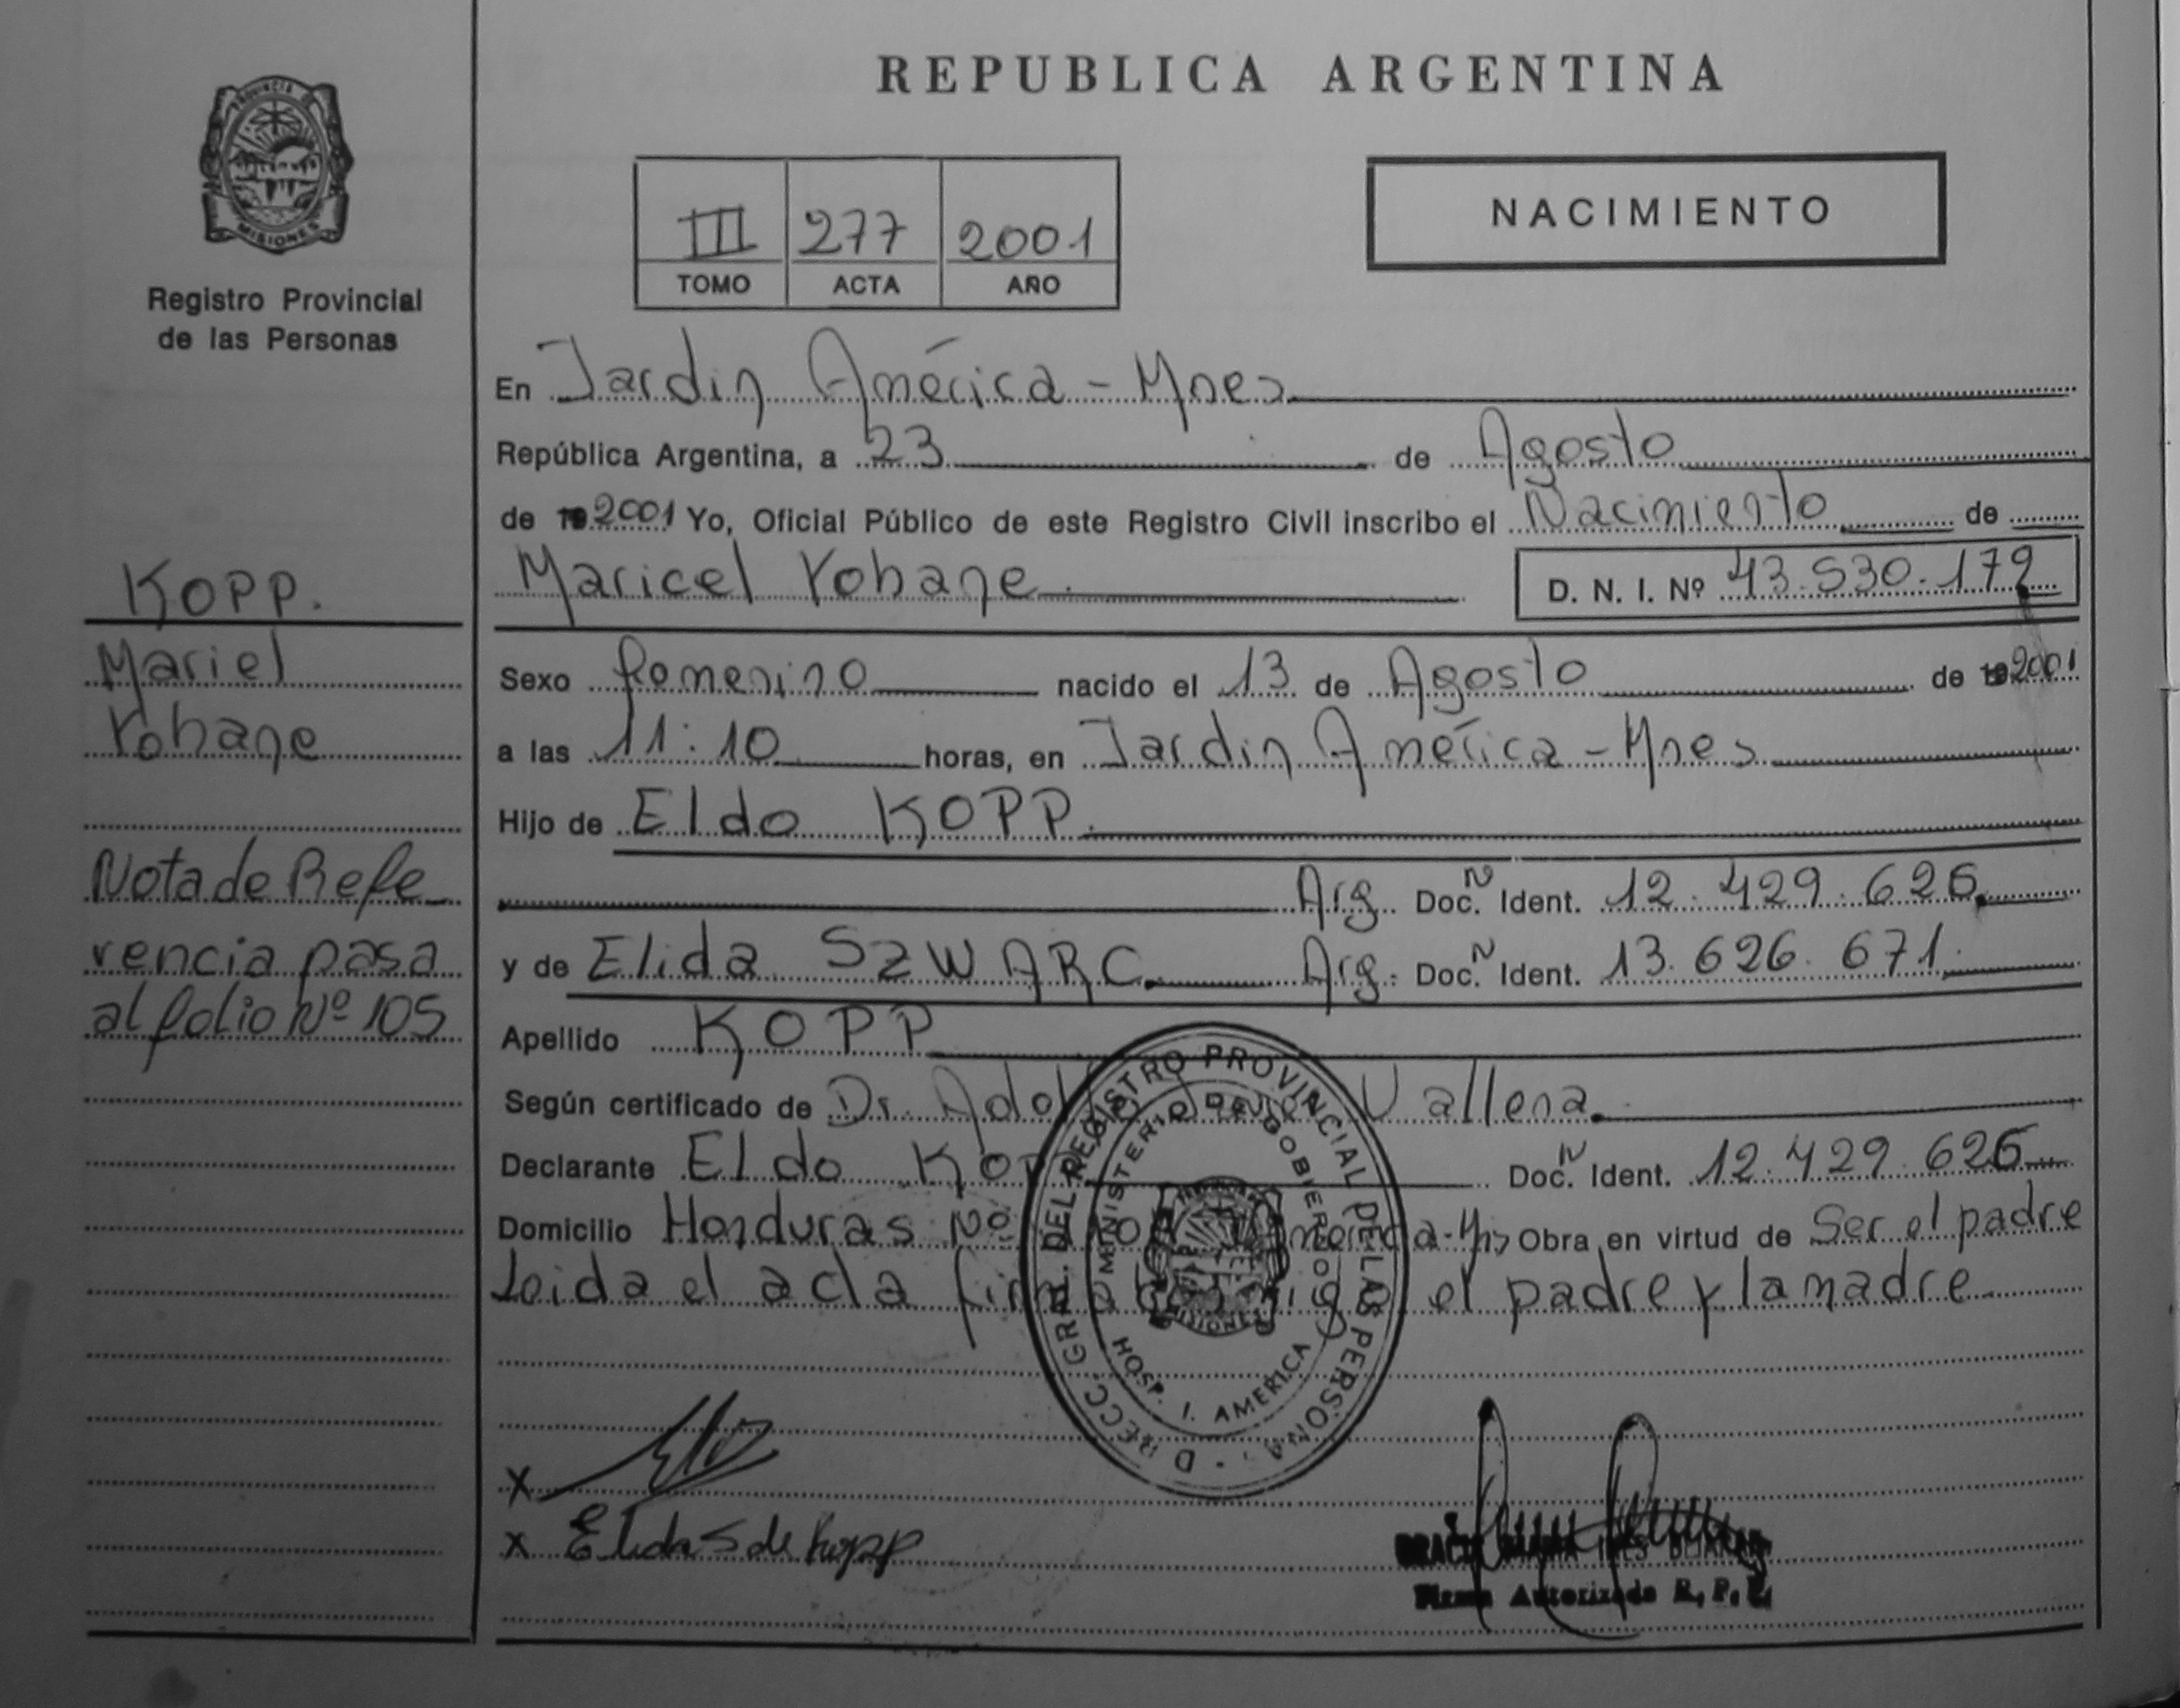 REPUBLICA ARGENTINA
PROVINCIA DE
MISIONES
Registro Provincial
de las Personas
III 277 2001
TOMO ACTA AÑO
NACIMIENTO
En Jardin América - Mnes
República Argentina, a 23 de Agosto
de 19 2001 Yo, Oficial Público de este Registro Civil inscribo el Nacimiento de
Maricel Yohane D. N. I. Nº 43.530.179
Sexo femenino nacido el 13 de Agosto de 19 2001
a las 11:10 horas, en Jardin América - Mnes
Hijo de Eldo KOPP.
Arg. Doc. N Ident. 12.429.626
y de Elida SZWARC. Arg. Doc. N Ident. 13.626.671
Apellido KOPP
Según certificado de Dr. Vallena.
Declarante Eldo Kopp Doc. N Ident. 12.429.626
Domicilio Honduras Nº Obra en virtud de Ser el padre
Leida el acta el padre y la madre
KOPP.
Mariel
Yohane
Nota de Refe
rencia pasa
al folio Nº 105
DIRECC. GRAL. DEL REGISTRO PROVINCIAL DE LAS PERSONAS
MINISTERIO DE GOBIERNO
MISIONES
HOSP. J. AMERICA
X
X Elida S de kopp
Firma Autorizada R. P. P.